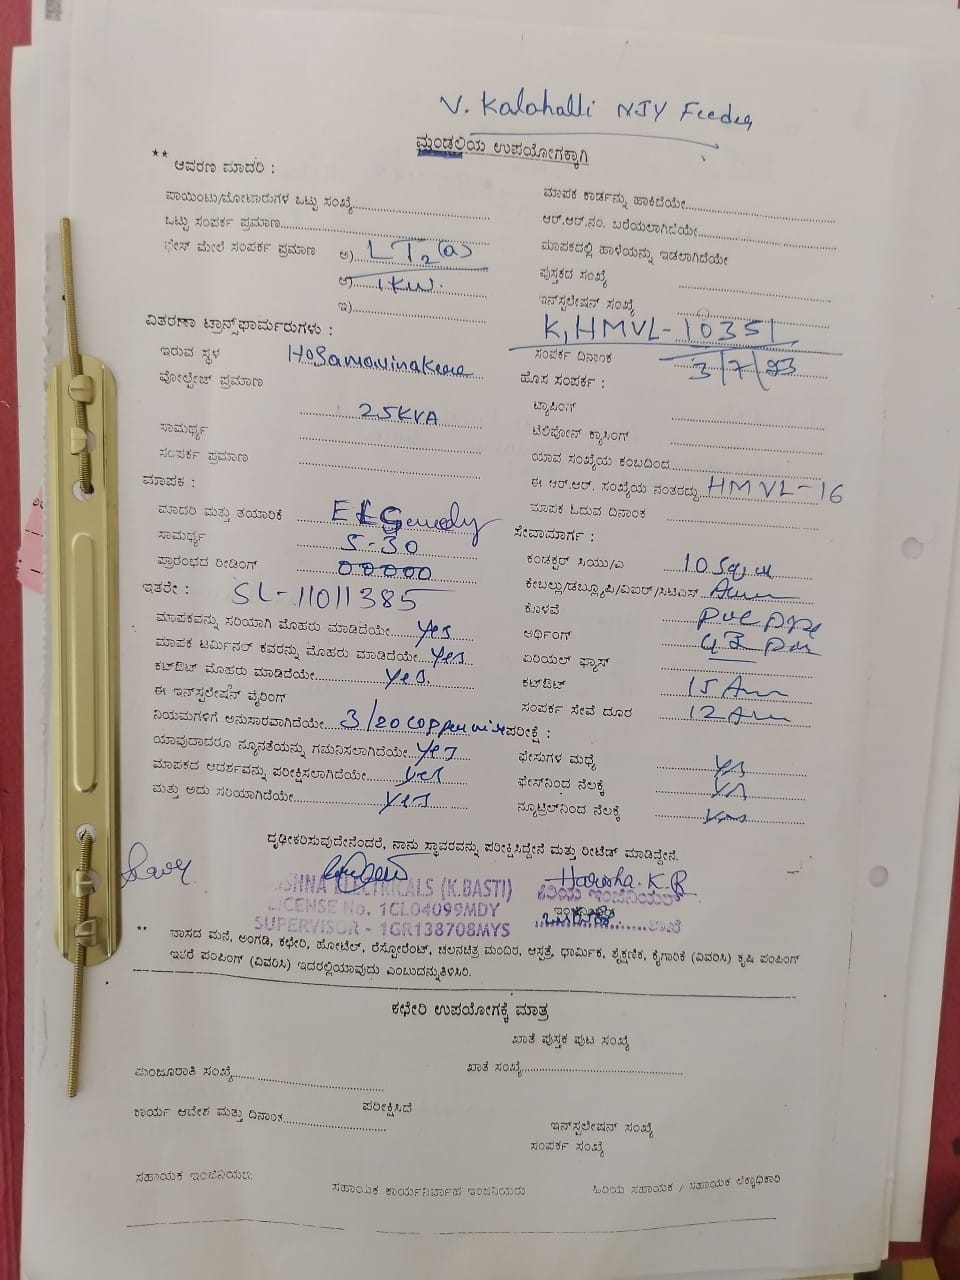 V. Kalahalli NJY Feeder
ಮಂಡಲಿಯ ಉಪಯೋಗಕ್ಕಾಗಿ
** ಆವರಣ ಮಾದರಿ :
ಪಾಯಿಂಟು/ಮೋಟಾರುಗಳ ಒಟ್ಟು ಸಂಖ್ಯೆ
ಒಟ್ಟು ಸಂಪರ್ಕ ಪ್ರಮಾಣ
ಫೇಸ್ ಮೇಲೆ ಸಂಪರ್ಕ ಪ್ರಮಾಣ ಅ) LT2(a)
ಆ) 1KW.
ಇ)
ಮಾಪಕ ಕಾರ್ಡನ್ನು ಹಾಕಿದೆಯೇ
ಆರ್.ಆರ್.ನಂ. ಬರೆಯಲಾಗಿದೆಯೇ
ಮಾಪಕದಲ್ಲಿ ಹಾಳೆಯನ್ನು ಇಡಲಾಗಿದೆಯೇ
ಪುಸ್ತಕದ ಸಂಖ್ಯೆ
ಇನ್‌ಸ್ಟಲೇಷನ್ ಸಂಖ್ಯೆ
K, HMVL-10351
ಸಂಪರ್ಕ ದಿನಾಂಕ 3/7/23
ವಿತರಣಾ ಟ್ರಾನ್ಸ್‌ಫಾರ್ಮರುಗಳು :
ಇರುವ ಸ್ಥಳ
ವೋಲ್ಟೇಜ್ ಪ್ರಮಾಣ
25KVA
ಸಾಮರ್ಥ್ಯ
ಸಂಪರ್ಕ ಪ್ರಮಾಣ
ಹೊಸ ಸಂಪರ್ಕ :
ಟ್ಯಾಪಿಂಗ್
ಟೆಲಿಫೋನ್ ಕ್ರಾಸಿಂಗ್
ಯಾವ ಸಂಖ್ಯೆಯ ಕಂಬದಿಂದ
ಈ ಆರ್.ಆರ್. ಸಂಖ್ಯೆಯ ನಂತರದ್ದು HMVL-16
ಮಾಪಕ ಓದುವ ದಿನಾಂಕ
ಮಾಪಕ :
ಮಾದರಿ ಮತ್ತು ತಯಾರಿಕೆ
ಸಾಮರ್ಥ್ಯ 5-30
ಪ್ರಾರಂಭದ ರೀಡಿಂಗ್ 00000
ಇತರೇ : SL-11011385
ಮಾಪಕವನ್ನು ಸರಿಯಾಗಿ ಮೊಹರು ಮಾಡಿದೆಯೇ Yes
ಮಾಪಕ ಟರ್ಮಿನಲ್ ಕವರನ್ನು ಮೊಹರು ಮಾಡಿದೆಯೇ Yes
ಕಟ್‌ಔಟ್ ಮೊಹರು ಮಾಡಿದೆಯೇ Yes.
ಈ ಇನ್‌ಸ್ಟಲೇಷನ್ ವೈರಿಂಗ್
ನಿಯಮಗಳಿಗೆ ಅನುಸಾರವಾಗಿದೆಯೇ 3/20 copper wire
ಯಾವುದಾದರೂ ನ್ಯೂನತೆಯನ್ನು ಗಮನಿಸಲಾಗಿದೆಯೇ Yes
ಮಾಪಕದ ಆದರ್ಶವನ್ನು ಪರೀಕ್ಷಿಸಲಾಗಿದೆಯೇ Yes
ಮತ್ತು ಅದು ಸರಿಯಾಗಿದೆಯೇ Yes
ಸೇವಾಮಾರ್ಗ :
ಕಂಡಕ್ಟರ್ ಸಿಯು/ಎ 10 Sq
ಕೇಬಲ್ಲು/ಡಬ್ಲ್ಯೂಪಿ/ವಿಐಆರ್/ಸಿಟಿಎಸ್
ಕೊಳವೆ PVC pipe
ಅರ್ಥಿಂಗ್
ಏರಿಯಲ್ ಫ್ಯೂಸ್
ಕಟ್‌ಔಟ್ 15
ಸಂಪರ್ಕ ಸೇವೆ ದೂರ 12
ಪರೀಕ್ಷೆ :
ಫೇಸುಗಳ ಮಧ್ಯೆ Yes
ಫೇಸ್‌ನಿಂದ ನೆಲಕ್ಕೆ Yes
ನ್ಯೂಟ್ರಲ್‌ನಿಂದ ನೆಲಕ್ಕೆ Yes
ದೃಢೀಕರಿಸುವುದೇನೆಂದರೆ, ನಾನು ಸ್ಥಾವರವನ್ನು ಪರೀಕ್ಷಿಸಿದ್ದೇನೆ ಮತ್ತು ರೀಟೆಡ್ ಮಾಡಿದ್ದೇನೆ.
Harsha. K.R
SHNA ELECTRICALS (K.BASTI)
LICENSE No. 1CL04099MDY
SUPERVISOR - 1GR138708MYS
ಕಿರಿಯ ಇಂಜಿನಿಯರ್
ಶಾಖೆ
** ವಾಸದ ಮನೆ, ಅಂಗಡಿ, ಕಛೇರಿ, ಹೋಟೆಲ್, ರೆಸ್ಟೋರೆಂಟ್, ಚಲನಚಿತ್ರ ಮಂದಿರ, ಆಸ್ಪತ್ರೆ, ಧಾರ್ಮಿಕ, ಶೈಕ್ಷಣಿಕ, ಕೈಗಾರಿಕೆ (ವಿವರಿಸಿ) ಕೃಷಿ ಪಂಪಿಂಗ್
ಇತರೆ ಪಂಪಿಂಗ್ (ವಿವರಿಸಿ) ಇದರಲ್ಲಿಯಾವುದು ಎಂಬುದನ್ನು ತಿಳಿಸಿರಿ.
ಕಛೇರಿ ಉಪಯೋಗಕ್ಕೆ ಮಾತ್ರ
ಖಾತೆ ಪುಸ್ತಕ ಪುಟ ಸಂಖ್ಯೆ
ಮಂಜೂರಾತಿ ಸಂಖ್ಯೆ
ಖಾತೆ ಸಂಖ್ಯೆ
ಪರೀಕ್ಷಿಸಿದೆ
ಕಾರ್ಯ ಆದೇಶ ಮತ್ತು ದಿನಾಂಕ
ಇನ್‌ಸ್ಟಲೇಷನ್ ಸಂಖ್ಯೆ
ಸಂಪರ್ಕ ಸಂಖ್ಯೆ
ಸಹಾಯಕ ಇಂಜಿನಿಯರು
ಸಹಾಯಕ ಕಾರ್ಯನಿರ್ವಾಹ ಇಂಜಿನಿಯರು
ಹಿರಿಯ ಸಹಾಯಕ / ಸಹಾಯಕ ಲೆಕ್ಕಾಧಿಕಾರಿ